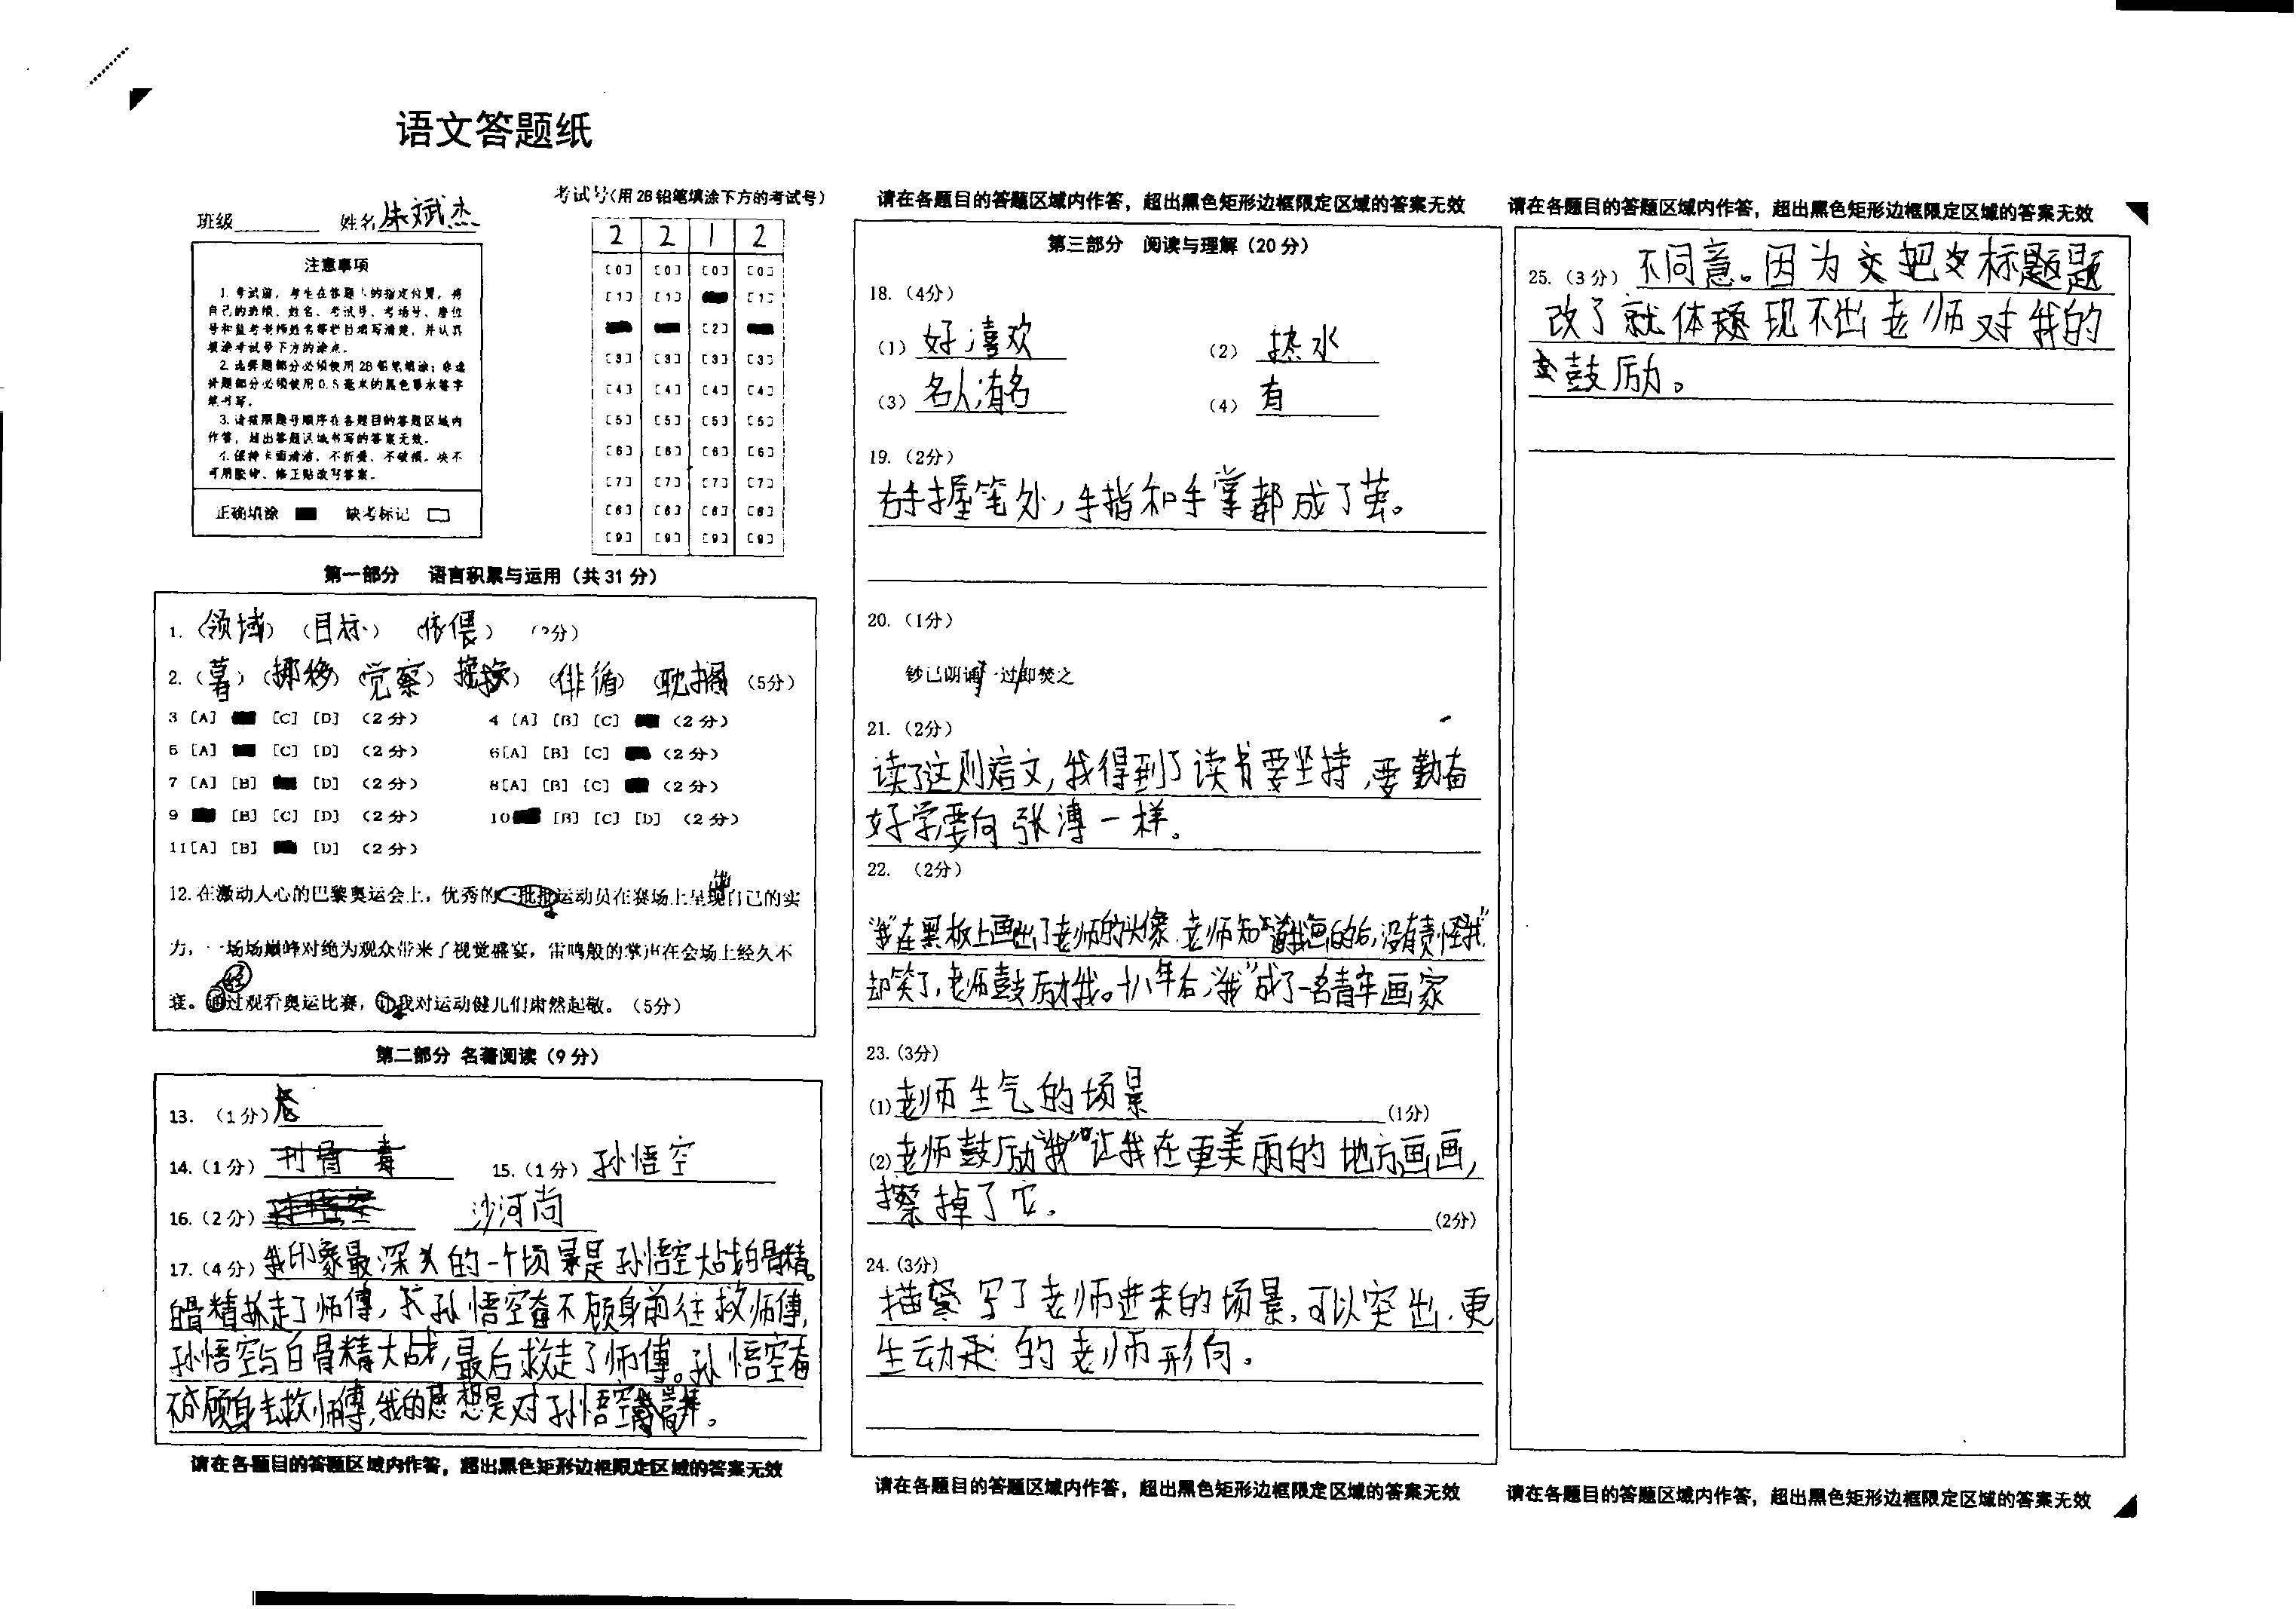 语文答题纸
班级 姓名 朱斌杰
考试号(用2B铅笔填涂下方的考试号)
2 2 1 2
[0] [0] [0] [0]
[1] [1] [1]
[2]
[3] [3] [3] [3]
[4] [4] [4] [4]
[5] [5] [5] [5]
[6] [6] [6] [6]
[7] [7] [7] [7]
[8] [8] [8] [8]
[9] [9] [9] [9]
注意事项
1. 考试前，考生在答题卡的指定位置，将
自己的班级、姓名、考试号、考场号、座位
号和监考老师姓名等栏目填写清楚，并认真
填涂考试号下方的涂点。
2. 选择题部分必须使用2B铅笔填涂；非选
择题部分必须使用0.5毫米的黑色墨水签字
笔书写。
3. 请按照题号顺序在各题目的答题区域内
作答，超出答题区域书写的答案无效。
4. 保持卡面清洁，不折叠、不破损。块不
可用胶带、修正贴改写答案。
正确填涂 缺考标记
第一部分 语言积累与运用（共31分）
1. （领域）（目标）（依偎）（3分）
2. （暮）（挪移）（觉察）（徘徊）（耽搁（5分）
3 [A] [C] [D] （2分） 4 [A] [B] [C] （2分）
5 [A] [C] [D] （2分） 6[A] [B] [C] （2分）
7 [A] [B] [D] （2分） 8[A] [B] [C] （2分）
9 [B] [C] [D] （2分） 10 [B] [C] [D] （2分）
11[A] [B] [D] （2分）
12.在激动人心的巴黎奥运会上，优秀的一批批运动员在赛场上呈现自己的实
力，一场场巅峰对绝为观众带来了视觉盛宴，雷鸣般的掌声在会场上经久不
衰。通过观看奥运比赛，让我对运动健儿们肃然起敬。（5分）
第二部分 名著阅读（9分）
13. （1分）
14.（1分） 15.（1分）孙悟空
16.（2分） 沙河尚
17.（4分）我印象最深的一个场景是孙悟空大战白骨精。
白骨精抓走了师傅，孙悟空奋不顾身前往救师傅，
孙悟空与白骨精大战，最后救走了师傅。孙悟空奋
不顾身去救师傅，我的感想是对孙悟空
请在各题目的答题区域内作答，超出黑色矩形边框限定区域的答案无效
请在各题目的答题区域内作答，超出黑色矩形边框限定区域的答案无效
第三部分 阅读与理解（20分）
18.（4分）
（1）好，喜欢 （2）热水
（3）名人，有名 （4）有
19.（2分）
右手握笔处，手指和手掌都成了茧。
20.（1分）
钞已朗诵一过即焚之
21.（2分）
读了这则语文，我得到了读书要坚持，要勤奋
好学，要向张溥一样。
22. （2分）
“我”在黑板上画出了老师的头像，老师知道我画的后，没有责怪“我”，
却笑了，老师鼓励我。十八年后，“我”成了一名青年画家
23.（3分）
（1）老师生气的场景 （1分）
（2）老师鼓励“我”让我在更美丽的地方画画，
擦掉了它。 （2分）
24.（3分）
描写了老师进来的场景，可以突出，更
生动 的老师形向。
请在各题目的答题区域内作答，超出黑色矩形边框限定区域的答案无效
请在各题目的答题区域内作答，超出黑色矩形边框限定区域的答案无效
25.（3分）不同意。因为 把 标题题
改了就体现不出老师对我的
鼓励。
请在各题目的答题区域内作答，超出黑色矩形边框限定区域的答案无效